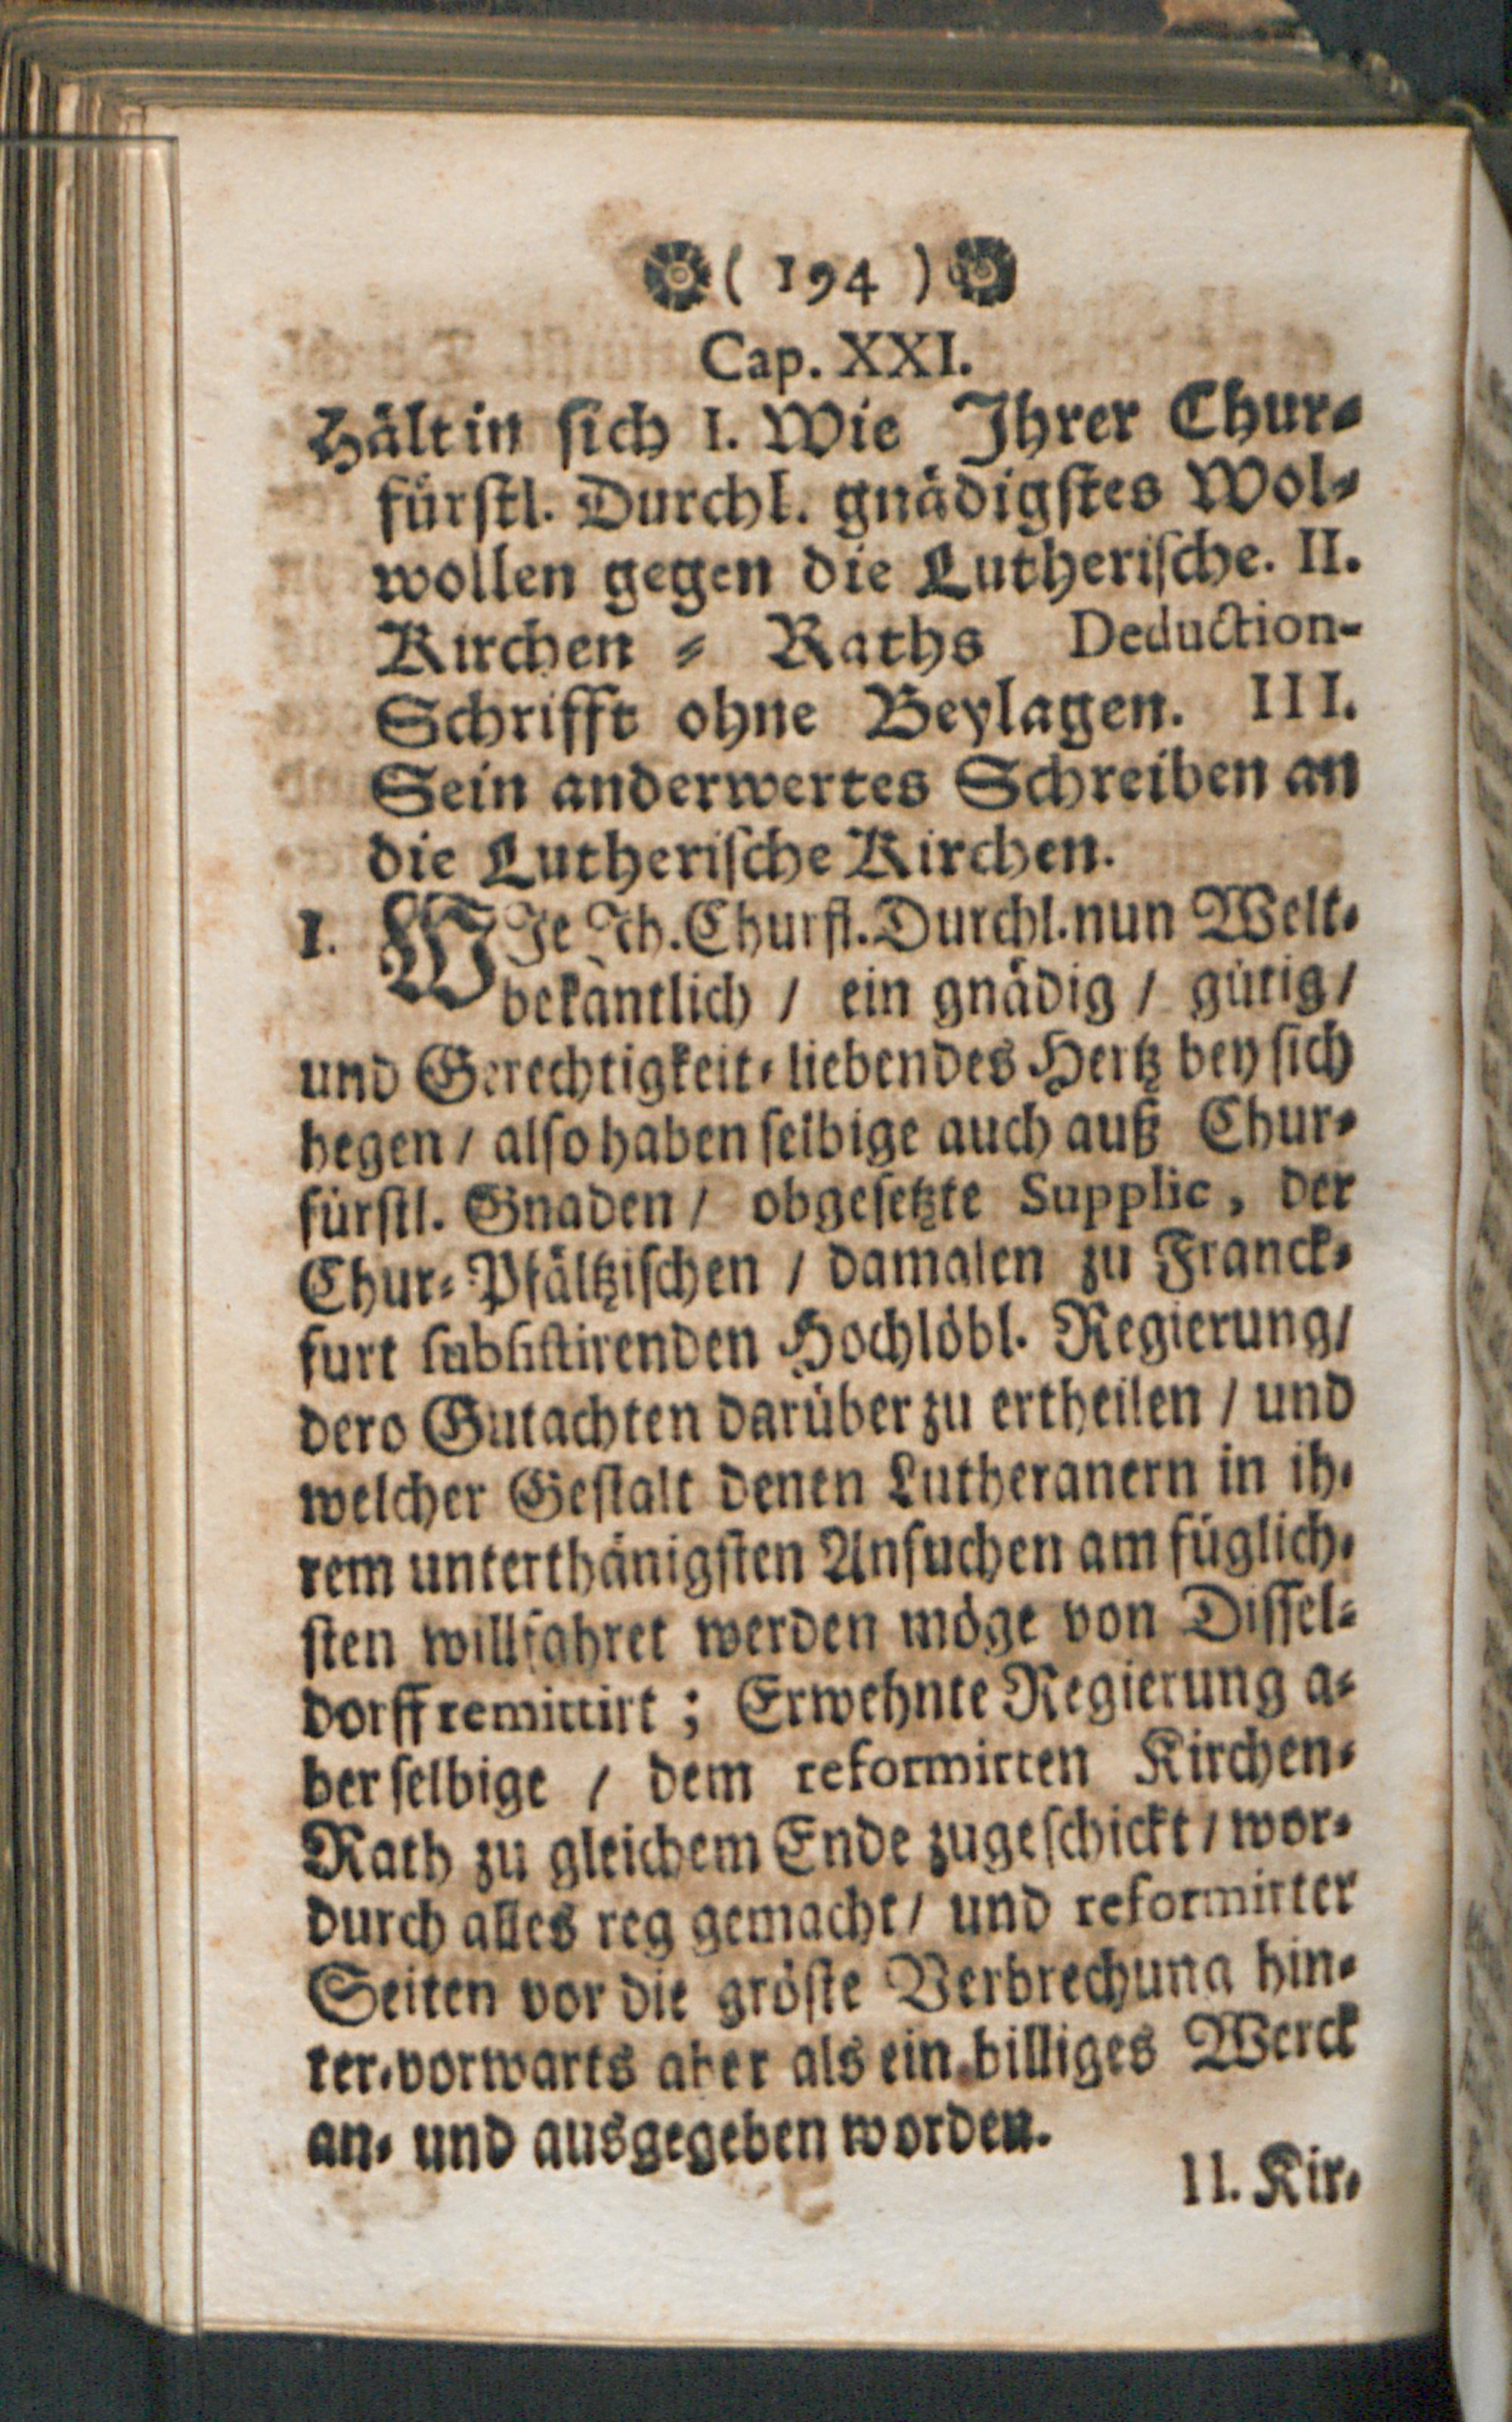 ( 194 )
Cap. XXI.
Hält in sich I. Wie Ihrer Chur-
fürstl. Durchl. gnädigstes Wol-
wollen gegen die Lutherische. II.
Kirchen - Raths Deduction-
Schrifft ohne Beylagen. III.
Sein anderwertes Schreiben an
die Lutherische Kirchen.
I. WIe Ih. Churfl. Durchl. nun Welt-
bekäntlich / ein gnädig / gütig /
und Gerechtigkeit-liebendes Hertz bey sich
hegen / also haben selbige auch auß Chur-
fürstl. Gnaden / obgesetzte Supplic, der
Chur-Pfältzischen / damalen zu Franck-
furt subsistirenden Hochlöbl. Regierung/
dero Gutachten darüber zu ertheilen / und
welcher Gestalt denen Lutheranern in ih-
rem unterthänigsten Ansuchen am füglich-
sten willfahret werden möge von Dissel-
dorff remittirt ; Erwehnte Regierung a-
ber selbige / dem reformirten Kirchen-
Rath zu gleichem Ende zugeschickt / wor-
durch alles reg gemacht / und reformirter
Seiten vor die gröste Verbrechung hin-
ter-vorwarts aber als ein billiges Werck
an- und ausgegeben worden.
II. Kir-